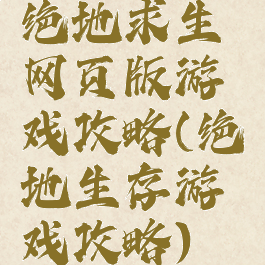 绝地求生
网页版游
戏攻略(绝
地生存游
戏攻略)